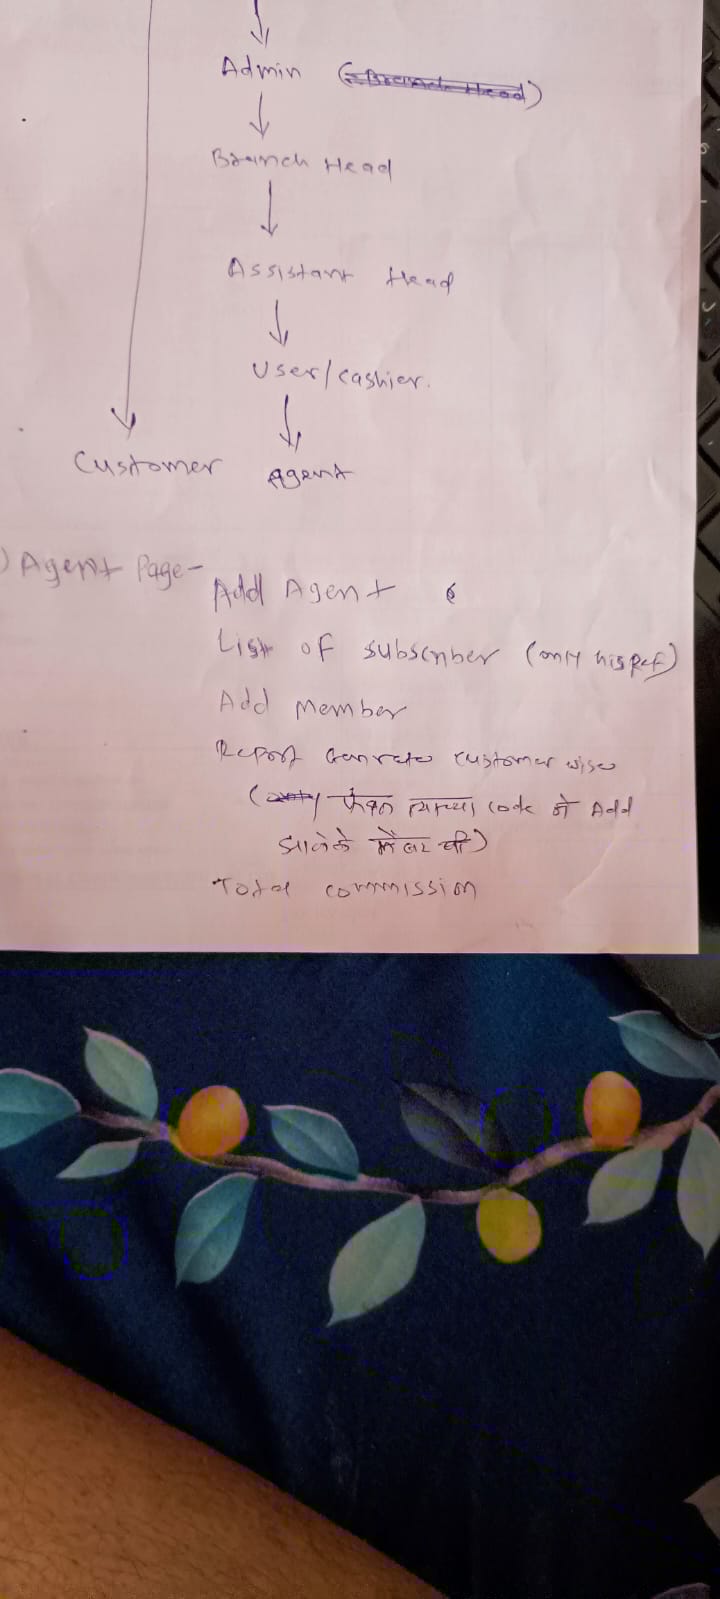 Admin (Branch Head)
Branch Head
Assistant Head
User/cashier.
Customer Agent
Agent Page -
Add Agent
List of subscriber (only his Ref)
Add Member
Report Genrate customer wise
(only फक्त त्याच्या code ने Add
झालेले मेंबर ची)
Total commission